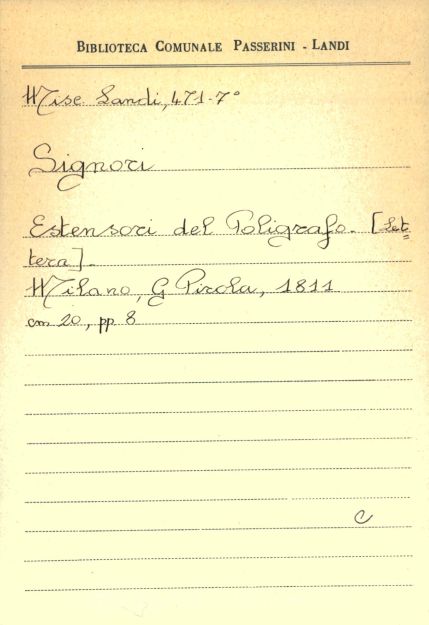 BIBLIOTECA COMUNALE PASSERINI - LANDI
Misc. Landi, 471-7°
Signori
Estensori del Poligrafo. [Let=
tera].
Milano, G Pirola, 1811
cm 20, pp 8
C